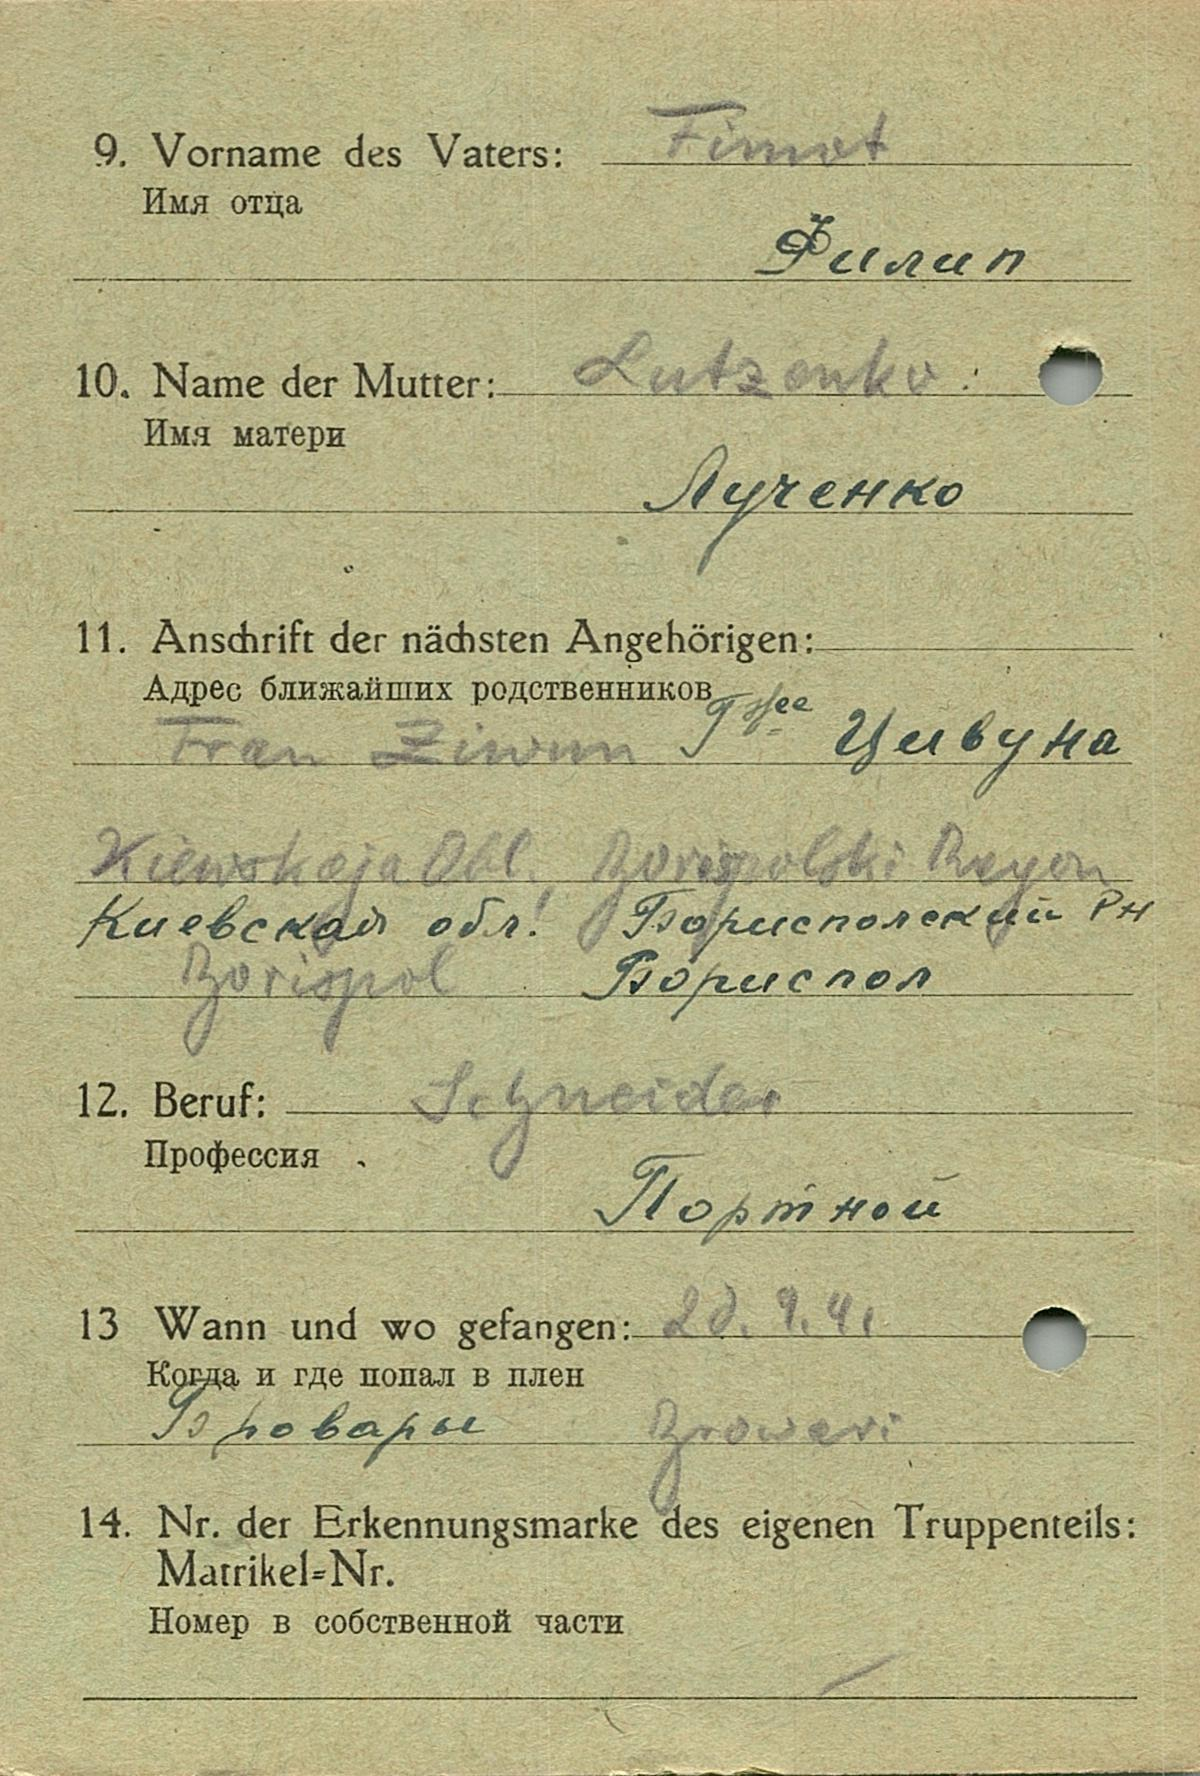 9. Vorname des Vaters: Fimot
Имя отца
Филип
10. Name der Mutter: Lutzenko
Имя матери
Лученко
11. Anschrift der nächsten Angehörigen:
Адрес ближайших родственников
Frau Ziwun Цивуна
Kiewskaja Obl. Borispolski Rayon
Киевская обл! Бориспольский Рн
Borispol Бориспол
12. Beruf: Schneider
Профессия
Портной
13 Wann und wo gefangen: 20. 9. 41
Когда и где попал в плен
Бровары Browari
14. Nr. der Erkennungsmarke des eigenen Truppenteils:
Matrikel=Nr.
Номер в собственной части